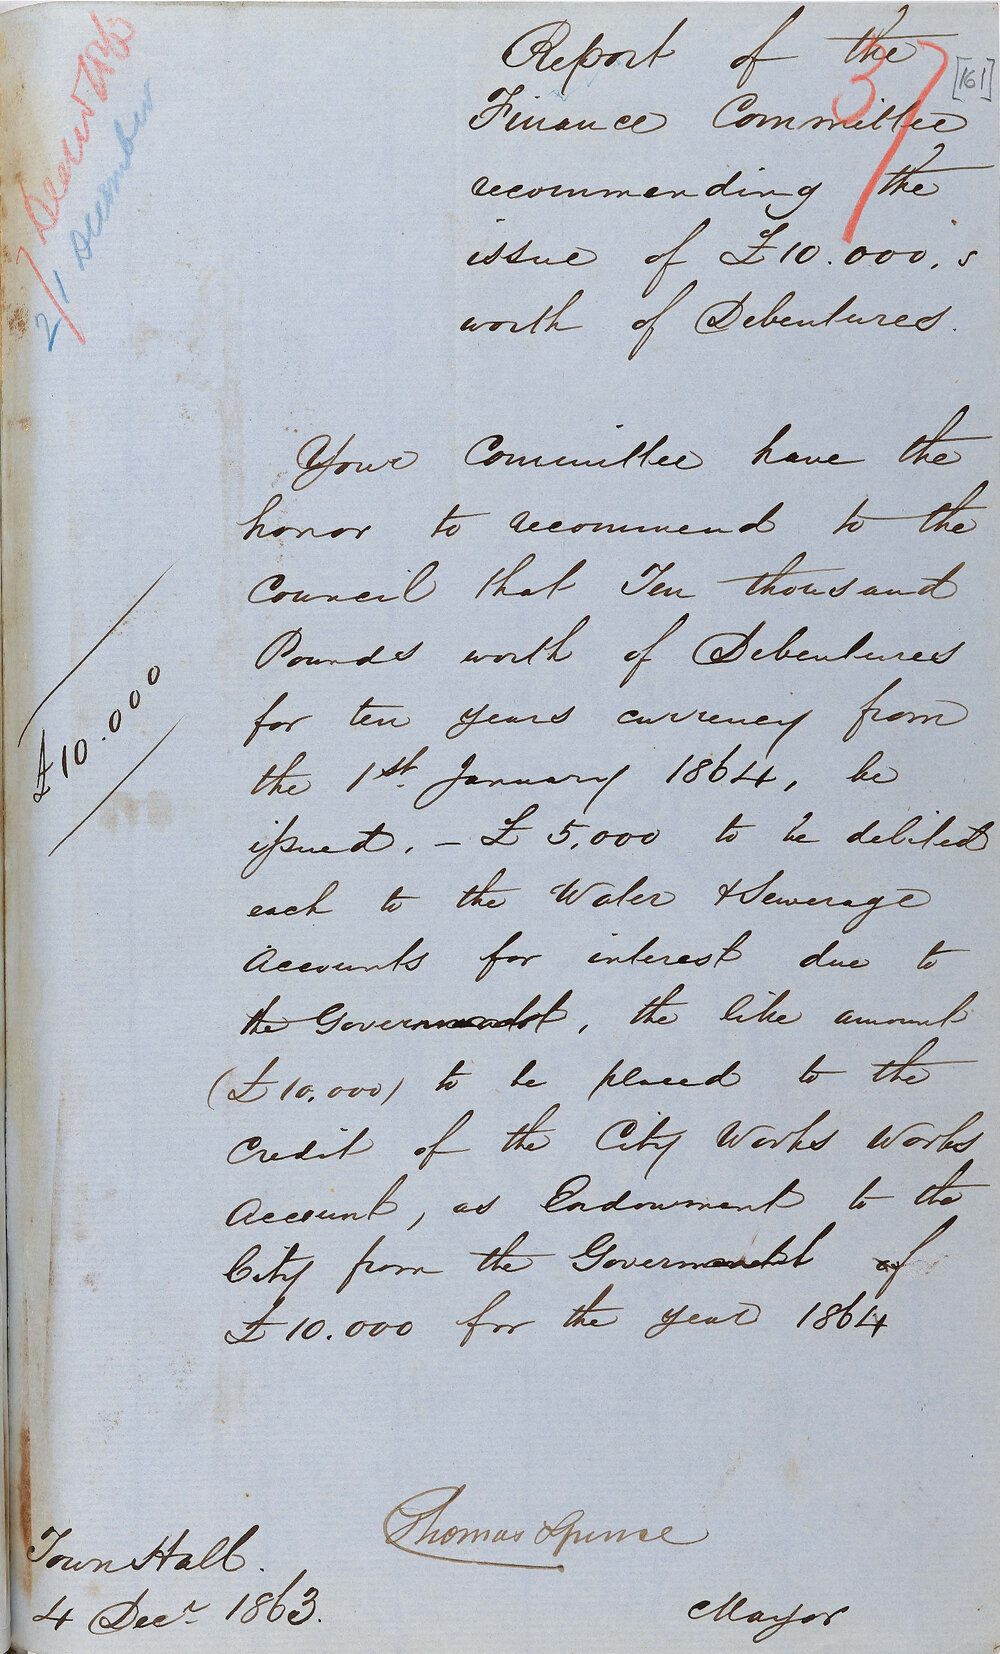 Report of the
Finance Committee
recommending the
issue of £10.000,s
worth of Debentures.
37
[161]
21 December
Your Committee have the
honor to recommend to the
Council that Ten thousand
Pounds worth of Debentures
for ten years currency from
the 1st January 1864, be
issued. – £5,000 to be debited
each to the Water & Sewerage
Accounts for interest due to
the Government, the like amount
(£10,000) to be placed to the
Credit of the City Works Works
Account, as Endowment to the
City from the Government of
£10.000 for the year 1864
£10.000
Thomas Spence
Mayor
Town Hall.
4 Decr 1863.